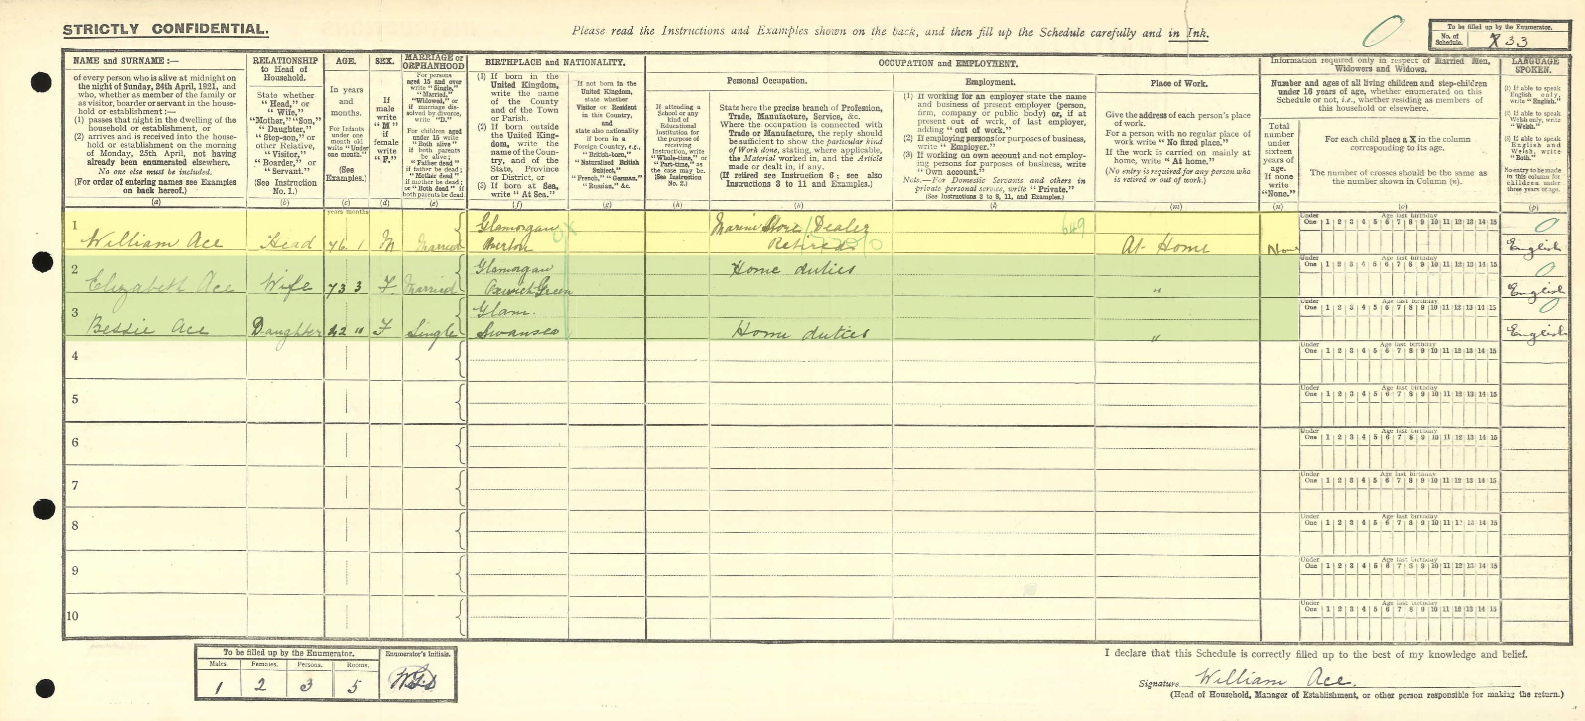 STRICTLY CONFIDENTIAL.
Please read the Instructions and Examples shown on the back, and then fill up the Schedule carefully and in Ink.
To be filled up by the Enumerator.
No. of Schedule. 33
NAME and SURNAME :—
of every person who is alive at midnight on
the night of Sunday, 24th April, 1921, and
who, whether as member of the family or
as visitor, boarder or servant in the house-
hold or establishment :—
(1) passes that night in the dwelling of the
household or establishment, or
(2) arrives and is received into the house-
hold or establishment on the morning
of Monday, 25th April, not having
already been enumerated elsewhere.
No one else must be included.
(For order of entering names see Examples
on back hereof.)
(a)
RELATIONSHIP
to Head of
Household.
State whether
"Head," or
"Wife,"
"Mother," "Son,"
"Daughter,"
"Step-son," or
other Relative,
"Visitor,"
"Boarder," or
"Servant."
(See Instruction
No. 1.)
(b)
AGE.
In years
and
months.
For Infants
under one
month old
write "Under
one month."
(See
Examples.)
(c)
SEX.
If
male
write
"M"
if
female
write
"F."
(d)
MARRIAGE or
ORPHANHOOD
For persons
aged 15 and over
write "Single,"
"Married,"
"Widowed," or
if marriage dis-
solved by divorce,
write "D."
For children aged
under 15 write
"Both alive"
if both parents
be alive;
"Father dead"
if father be dead;
"Mother dead"
if mother be dead;
or "Both dead" if
both parents be dead.
(e)
BIRTHPLACE and NATIONALITY.
(1) If born in the
United Kingdom,
write the name
of the County
and of the Town
or Parish.
(2) If born outside
the United King-
dom, write the
name of the Coun-
try, and of the
State, Province
or District, or
(3) If born at Sea,
write "At Sea."
(f)
If not born in the
United Kingdom,
state whether
Visitor or Resident
in this Country,
and
state also nationality
if born in a
Foreign Country, e.g.,
"British-born,"
"Naturalised British
Subject,"
"French," "German,"
"Russian," &c.
(g)
OCCUPATION and EMPLOYMENT.
If attending a
School or any
kind of
Educational
Institution for
the purpose of
receiving
Instruction, write
"Whole-time," or
"Part-time," as
the case may be.
(See Instruction
No. 2.)
(h)
Personal Occupation.
State here the precise branch of Profession,
Trade, Manufacture, Service, &c.
Where the occupation is connected with
Trade or Manufacture, the reply should
be sufficient to show the particular kind
of Work done, stating, where applicable,
the Material worked in, and the Article
made or dealt in, if any.
(If retired see Instruction 6; see also
Instructions 3 to 11 and Examples.)
Employment.
(1) If working for an employer state the name
and business of present employer (person,
firm, company or public body) or, if at
present out of work, of last employer,
adding "out of work."
(2) If employing persons for purposes of business,
write "Employer."
(3) If working on own account and not employ-
ing persons for purposes of business, write
"Own account."
Note.—For Domestic Servants and others in
private personal service, write "Private."
(See Instructions 3 to 8, 11, and Examples.)
Place of Work.
Give the address of each person's place
of work.
For a person with no regular place of
work write "No fixed place."
If the work is carried on mainly at
home, write "At home."
(No entry is required for any person who
is retired or out of work.)
(m)
Information required only in respect of Married Men,
Widowers and Widows.
Number and ages of all living children and step-children
under 16 years of age, whether enumerated on this
Schedule or not, i.e., whether residing as members of
this household or elsewhere.
Total
number
under
sixteen
years of
age.
If none
write
"None."
(n)
For each child place a X in the column
corresponding to its age.
The number of crosses should be the same as
the number shown in Column (n).
(o)
LANGUAGE
SPOKEN.
(1) If able to speak
English only,
write "English."
(2) If able to speak
Welsh only, write
"Welsh."
(3) If able to speak
English and
Welsh, write
"Both."
No entry to be made
in this column for
children under
three years of age.
(p)
years months
1 William Ace Head 76 1 M Married Glamorgan Marine Store Dealer Retired At Home None English
2 Elizabeth Ace Wife 73 3 F Married Glamorgan Oxwich Green Home duties " English
3 Bessie Ace Daughter 42 11 F Single Glam. Swansea Home duties " English
649
4
5
6
7
8
9
10
Under One Age last birthday 1 2 3 4 5 6 7 8 9 10 11 12 13 14 15
To be filled up by the Enumerator.
Males. Females. Persons. Rooms.
1 2 3 5
Enumerator's Initials.
I declare that this Schedule is correctly filled up to the best of my knowledge and belief.
Signature William Ace.
(Head of Household, Manager of Establishment, or other person responsible for making the return.)